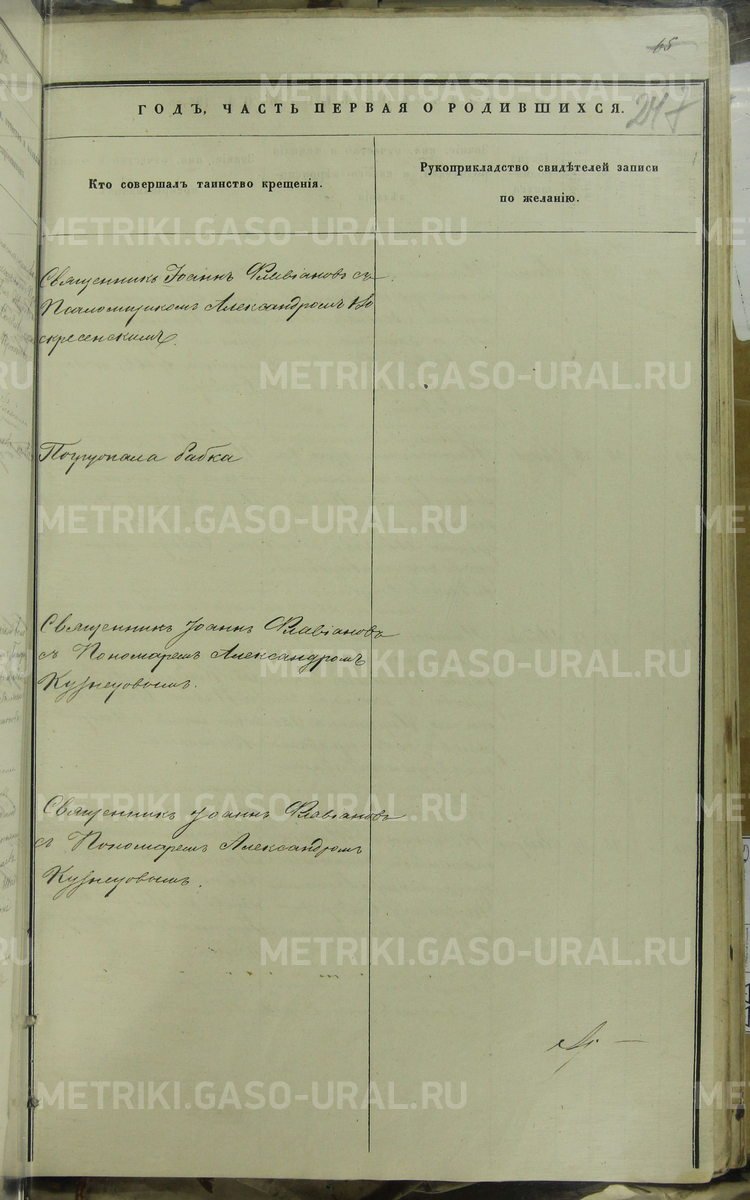 45
ГОДЪ, ЧАСТЬ ПЕРВАЯ О РОДИВШИХСЯ.
247
Кто совершалъ таинство крещенія.
Рукоприкладство свидѣтелей записи
по желанію.
Священникъ Іоаннъ Флавіановъ съ
Псаломщикомъ Александромъ Во
скресенскимъ.
Погружала бабка
Священникъ Іоаннъ Флавіановъ
съ Пономаремъ Александромъ
Кузнецовымъ.
Священникъ Іоаннъ Флавіановъ
съ Пономаремъ Александромъ
Кузнецовымъ.
METRIKI.GASO-URAL.RU